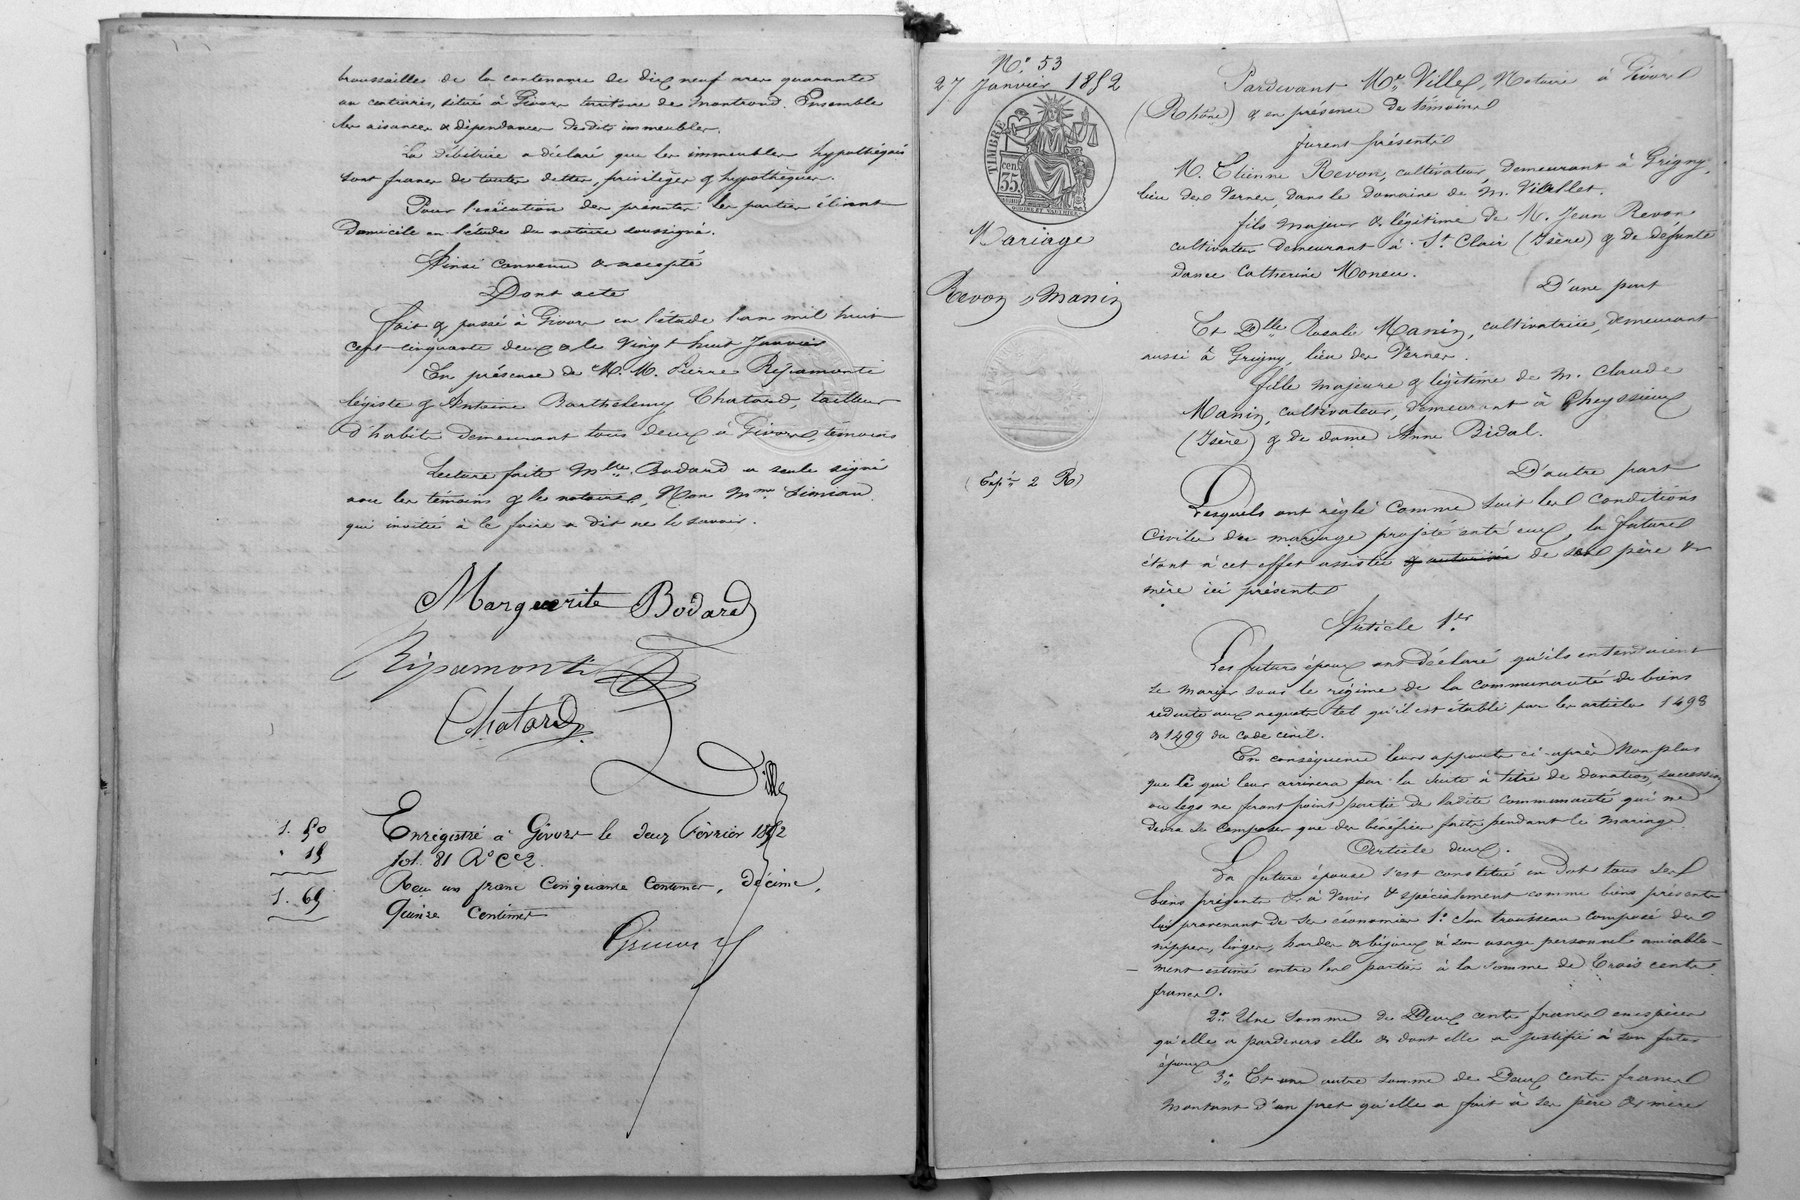 broussailles de la contenance de dix neuf ares quarante
un centiares, situé à Givors territoire de Montrond. Ensemble
les aisances & dépendances desdits immeubles.
La débitrice a déclaré que les immeubles hypothéqués
sont francs de toutes dettes, privilèges & hypothèques.
Pour l'exécution des présentes les parties élisent
domicile en l'étude du notaire soussigné.
Ainsi convenu & accepté
Dont acte
fait & passé à Givors en l'étude l'an mil huit
cent cinquante deux & le vingt huit Janvier
En présence de M. M. Pierre Ripamonti
légiste & Antoine Barthélemy Chatard, tailleur
d'habits demeurant tous deux à Givors témoins
Lecture faite Mlle Bodard a seule signé
avec les témoins & le notaire, Non Mme
qui invitée à le faire a dit ne le savoir.
Marguerite Bodard
Ripamonti
Chatard
Ville
1. 50
. 15
1. 65
Enregistré à Givors le deux Février 1852
fol. 81 Ro Ce 2.
Reçu un franc cinquante centimes, décime,
quinze centimes
N.° 53
27 Janvier 1852
TIMBRE
cen.
35.
Mariage
Revon & Manin
(Expon 2 R)
Pardevant Me Ville, Notaire à Givors
(Rhône) & en présence de témoins
furent présents
M. Etienne Revon, cultivateur, demeurant à Grigny,
lieu des Vernes, dans le domaine de M. Vitallet.
fils majeur & légitime de M. Jean Revon
cultivateur demeurant à St Clair (Isère) & de défunte
dame Catherine Moneu.
D'une part
Et Dlle Rosalie Manin, cultivatrice, demeurant
aussi à Grigny, lieu des Vernes.
fille majeure & légitime de M. Claude
Manin, cultivateur, demeurant à Cheyssieux
(Isère) & de dame Anne Bidal.
D'autre part
Lesquels ont réglé comme suit les conditions
civiles du mariage projeté entre eux, la future
étant à cet effet assistée & autorisée de ses père &
mère ici présents
Article 1er
Les futurs époux ont déclaré qu'ils entendaient
se marier sous le régime de la communauté de biens
réduite aux acquets tel qu'il est établi par les articles 1498
& 1499 du code civil.
En conséquence leurs apports ci-après Non plus
que ce qui leur arrivera par la suite à titre de donation, succession
ou legs ne feront point partie de ladite communauté qui ne
devra se composer que des bénéfices faits pendant le mariage
Article deux.
La future épouse s'est constitué en dot tous ses
biens présents & à venir & spécialement comme biens présents
lui provenant de ses économies 1° Son trousseau composé des
nippes, linges, hardes & bijoux à son usage personnel amiable-
-ment estimé entre les parties à la somme de Trois cents
francs.
2° Une somme de Deux cents francs en espèces
qu'elle a pardevers elle & dont elle a justifié à son futur
époux
3° Et une autre somme de Deux cents francs
Montant d'un pret qu'elle a fait à ses père & mère